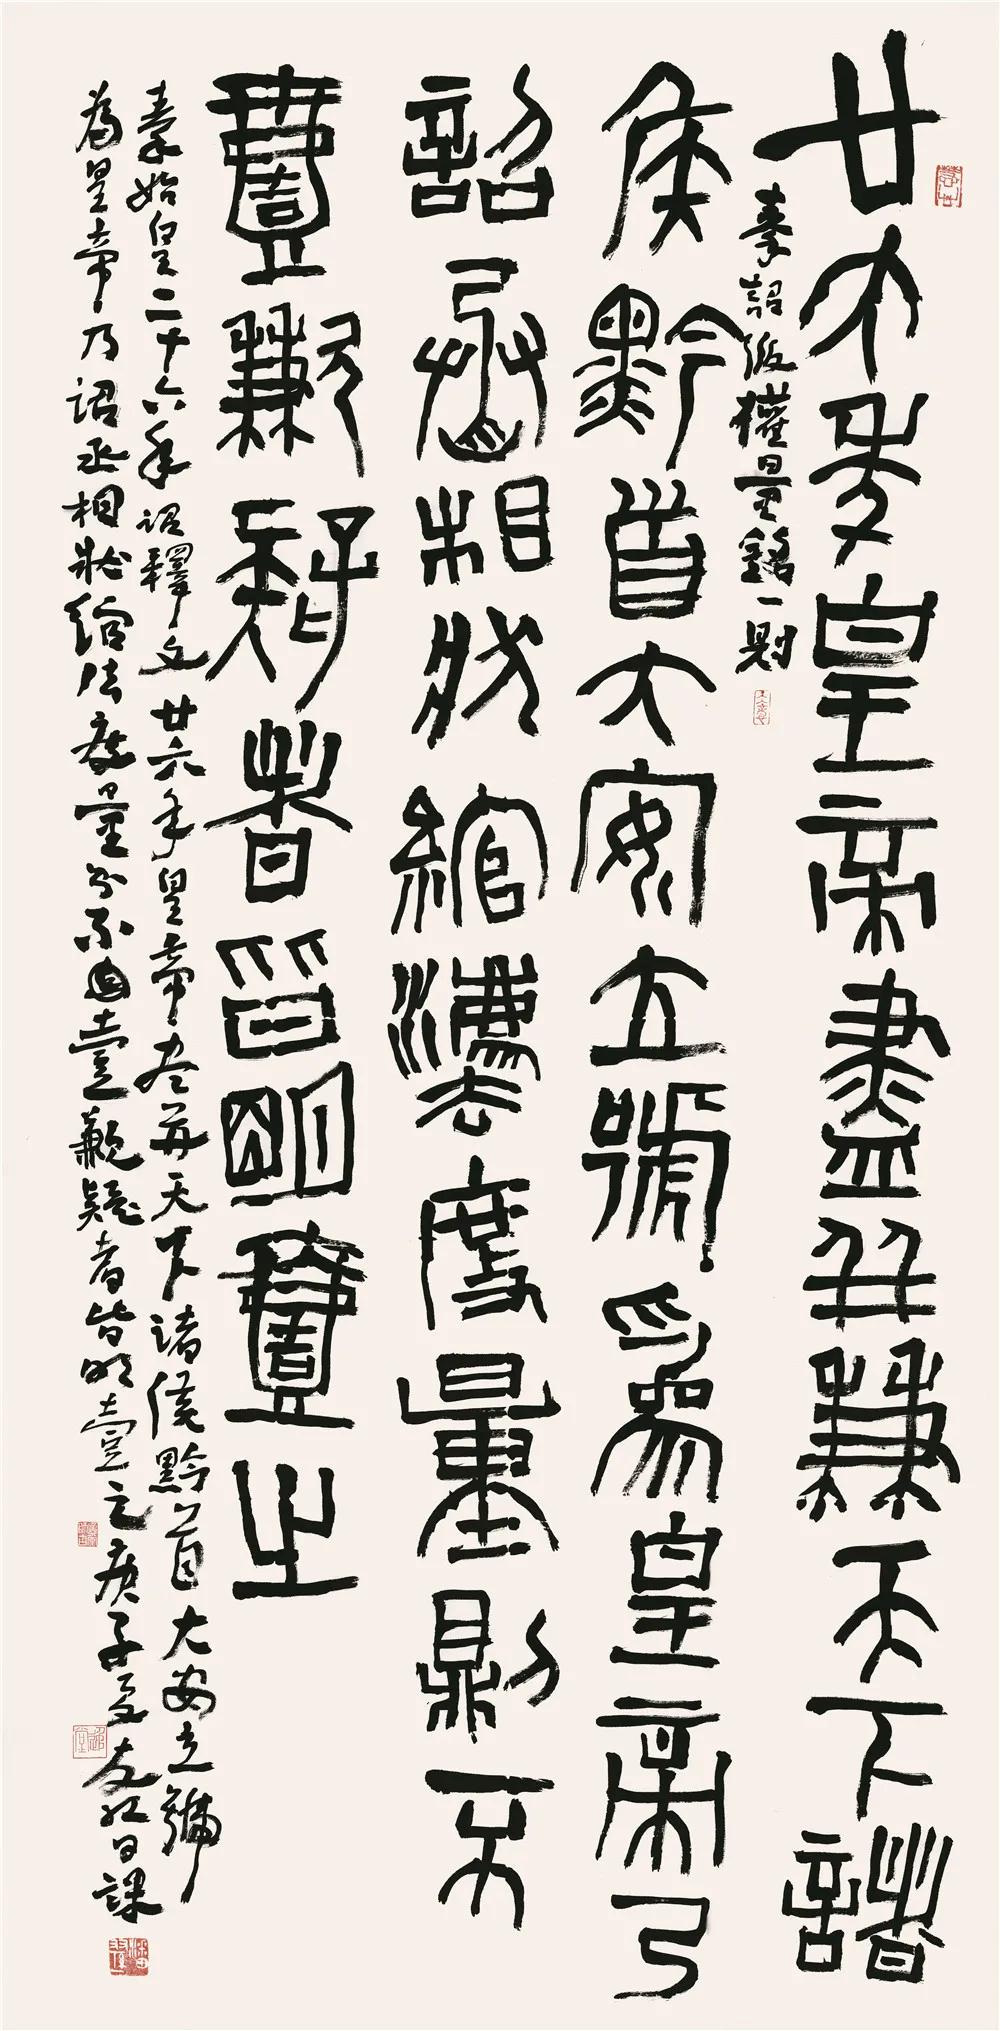 廿六年皇帝盡并兼天下諸
秦詔版權量銘一則
侯黔首大安立號為皇帝乃
詔丞相狀綰灋度量則不
壹歉疑者皆明壹之
秦始皇二十六年詔釋文廿六年皇帝盡并天下諸侯黔首大安立號
為皇帝乃詔丞相狀綰法度量則不壹歉疑者皆明壹之庚子夏友红日課